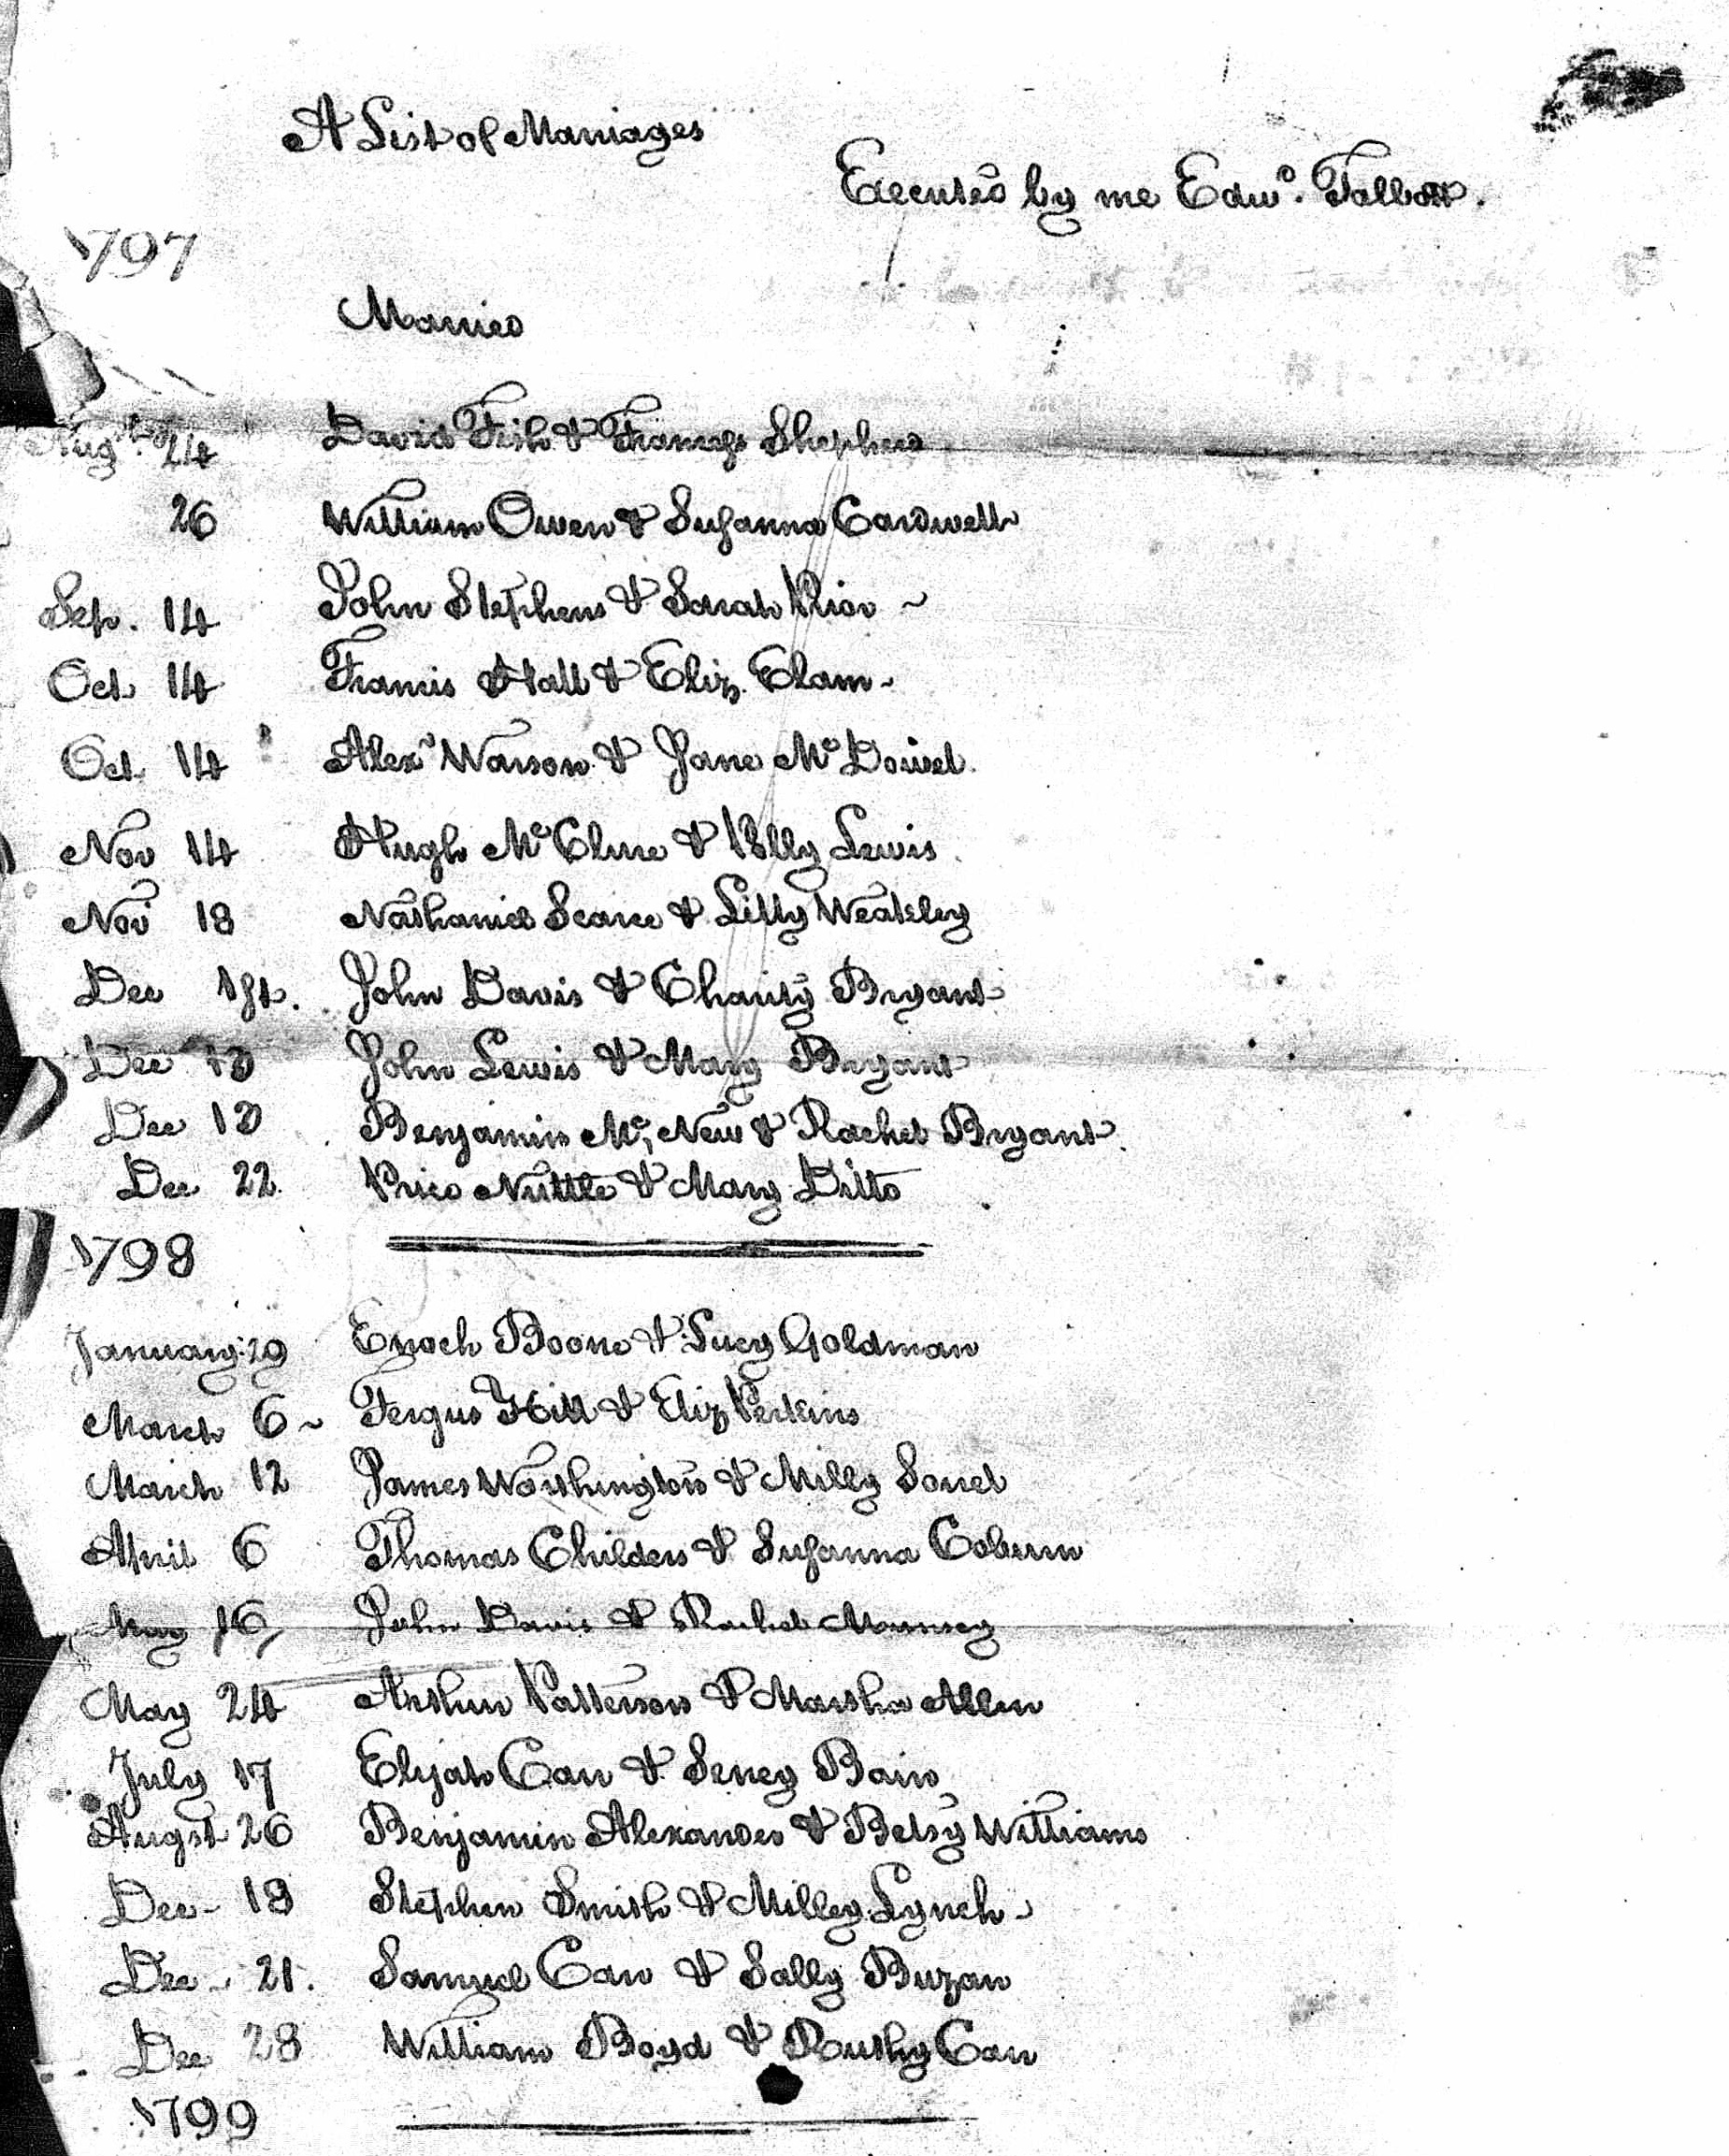 A List of Marriages
Executed by me Edwd. Talbott.
1797
Married
Augt. 24 David Fish & Frances Shepherd
26 William Owen & Susanna Cardwell
Sep. 14 John Stephens & Sarah Prior
Oct 14 Francis Hall & Eliz. Elam
Oct 14 Alexr Warson & Jane McDowel
Nov 14 Hugh McClure & Polly Lewis
Nov 18 Nathaniel Scarce & Litty Weakley
Dec 1st. John Davis & Charity Bryant
Dec 13 John Lewis & Mary Bryant
Dec 13 Benjamin Mc New & Rachel Bryant.
Dec 22 Price Nuttle & Mary Ditto
1798
January 29 Enoch Boone & Lucy Goldman
March 6 Fergus Hill & Eliz Perkins
March 12 James Worthington & Milly Sorrel
April 6 Thomas Childers & Susanna Coburn
May 16 John Davis & Rachel
May 24 Arthur Patterson & Martha Allen
July 17 Elijah Carr & Seney Bain
Augst 26 Benjamin Alexander & Betsy Williams
Dec 18 Stephen Smith & Milley Lynch
Dec 21. Samuel Carr & Sally Buzan
Dec 28 William Boyd & Ruthy Carr
1799